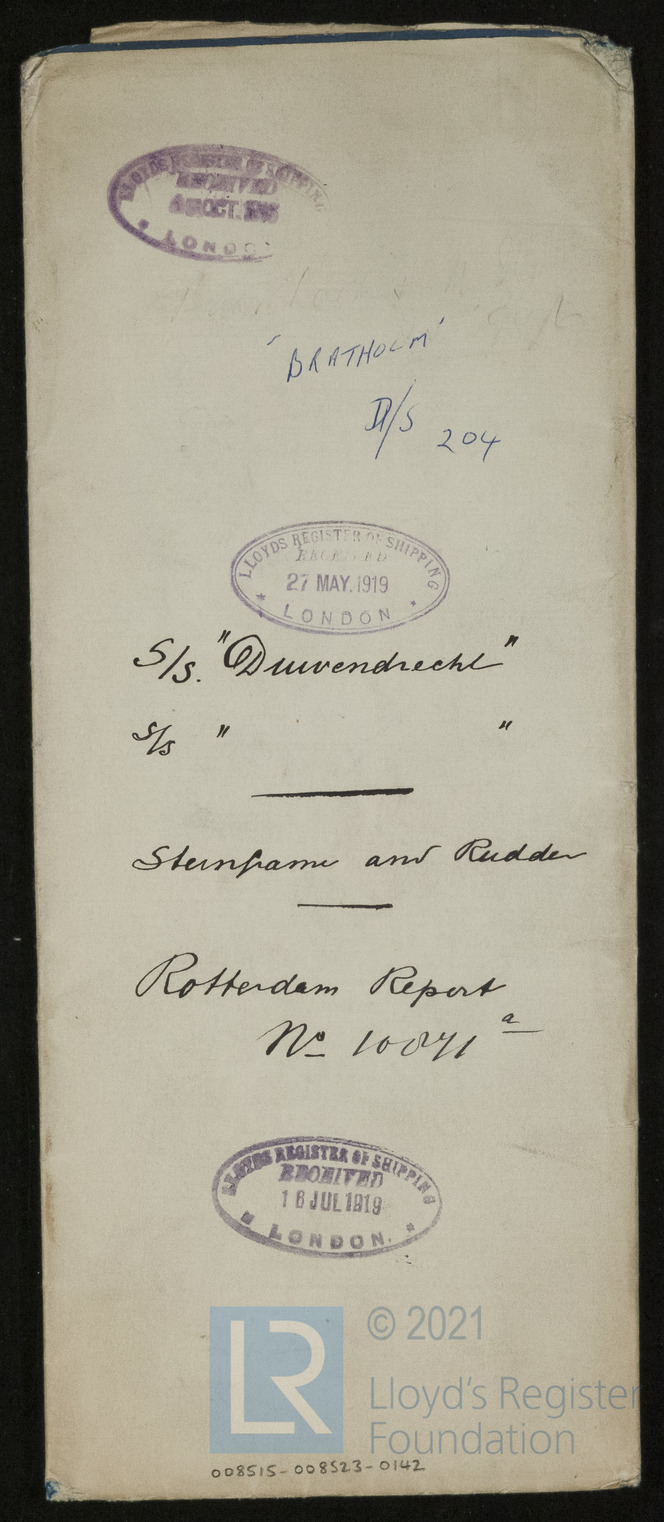 LLOYDS REGISTER OF SHIPPING
RECEIVED
OCT.
LONDON
'BRATHOLM'
D/S 204
LLOYDS REGISTER OF SHIPPING
RECEIVED
27 MAY.1919
LONDON
S/s. "Duivendrecht"
S/s " "
Sternframe and Rudder
Rotterdam Report
No 10871a
LLOYDS REGISTER OF SHIPPING
RECEIVED
16 JUL 1919
LONDON.
LR
© 2021
Lloyd's Register
Foundation
008515-008523-0142